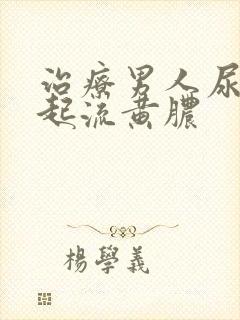 治療男人尿
起流黃膿
楊學義